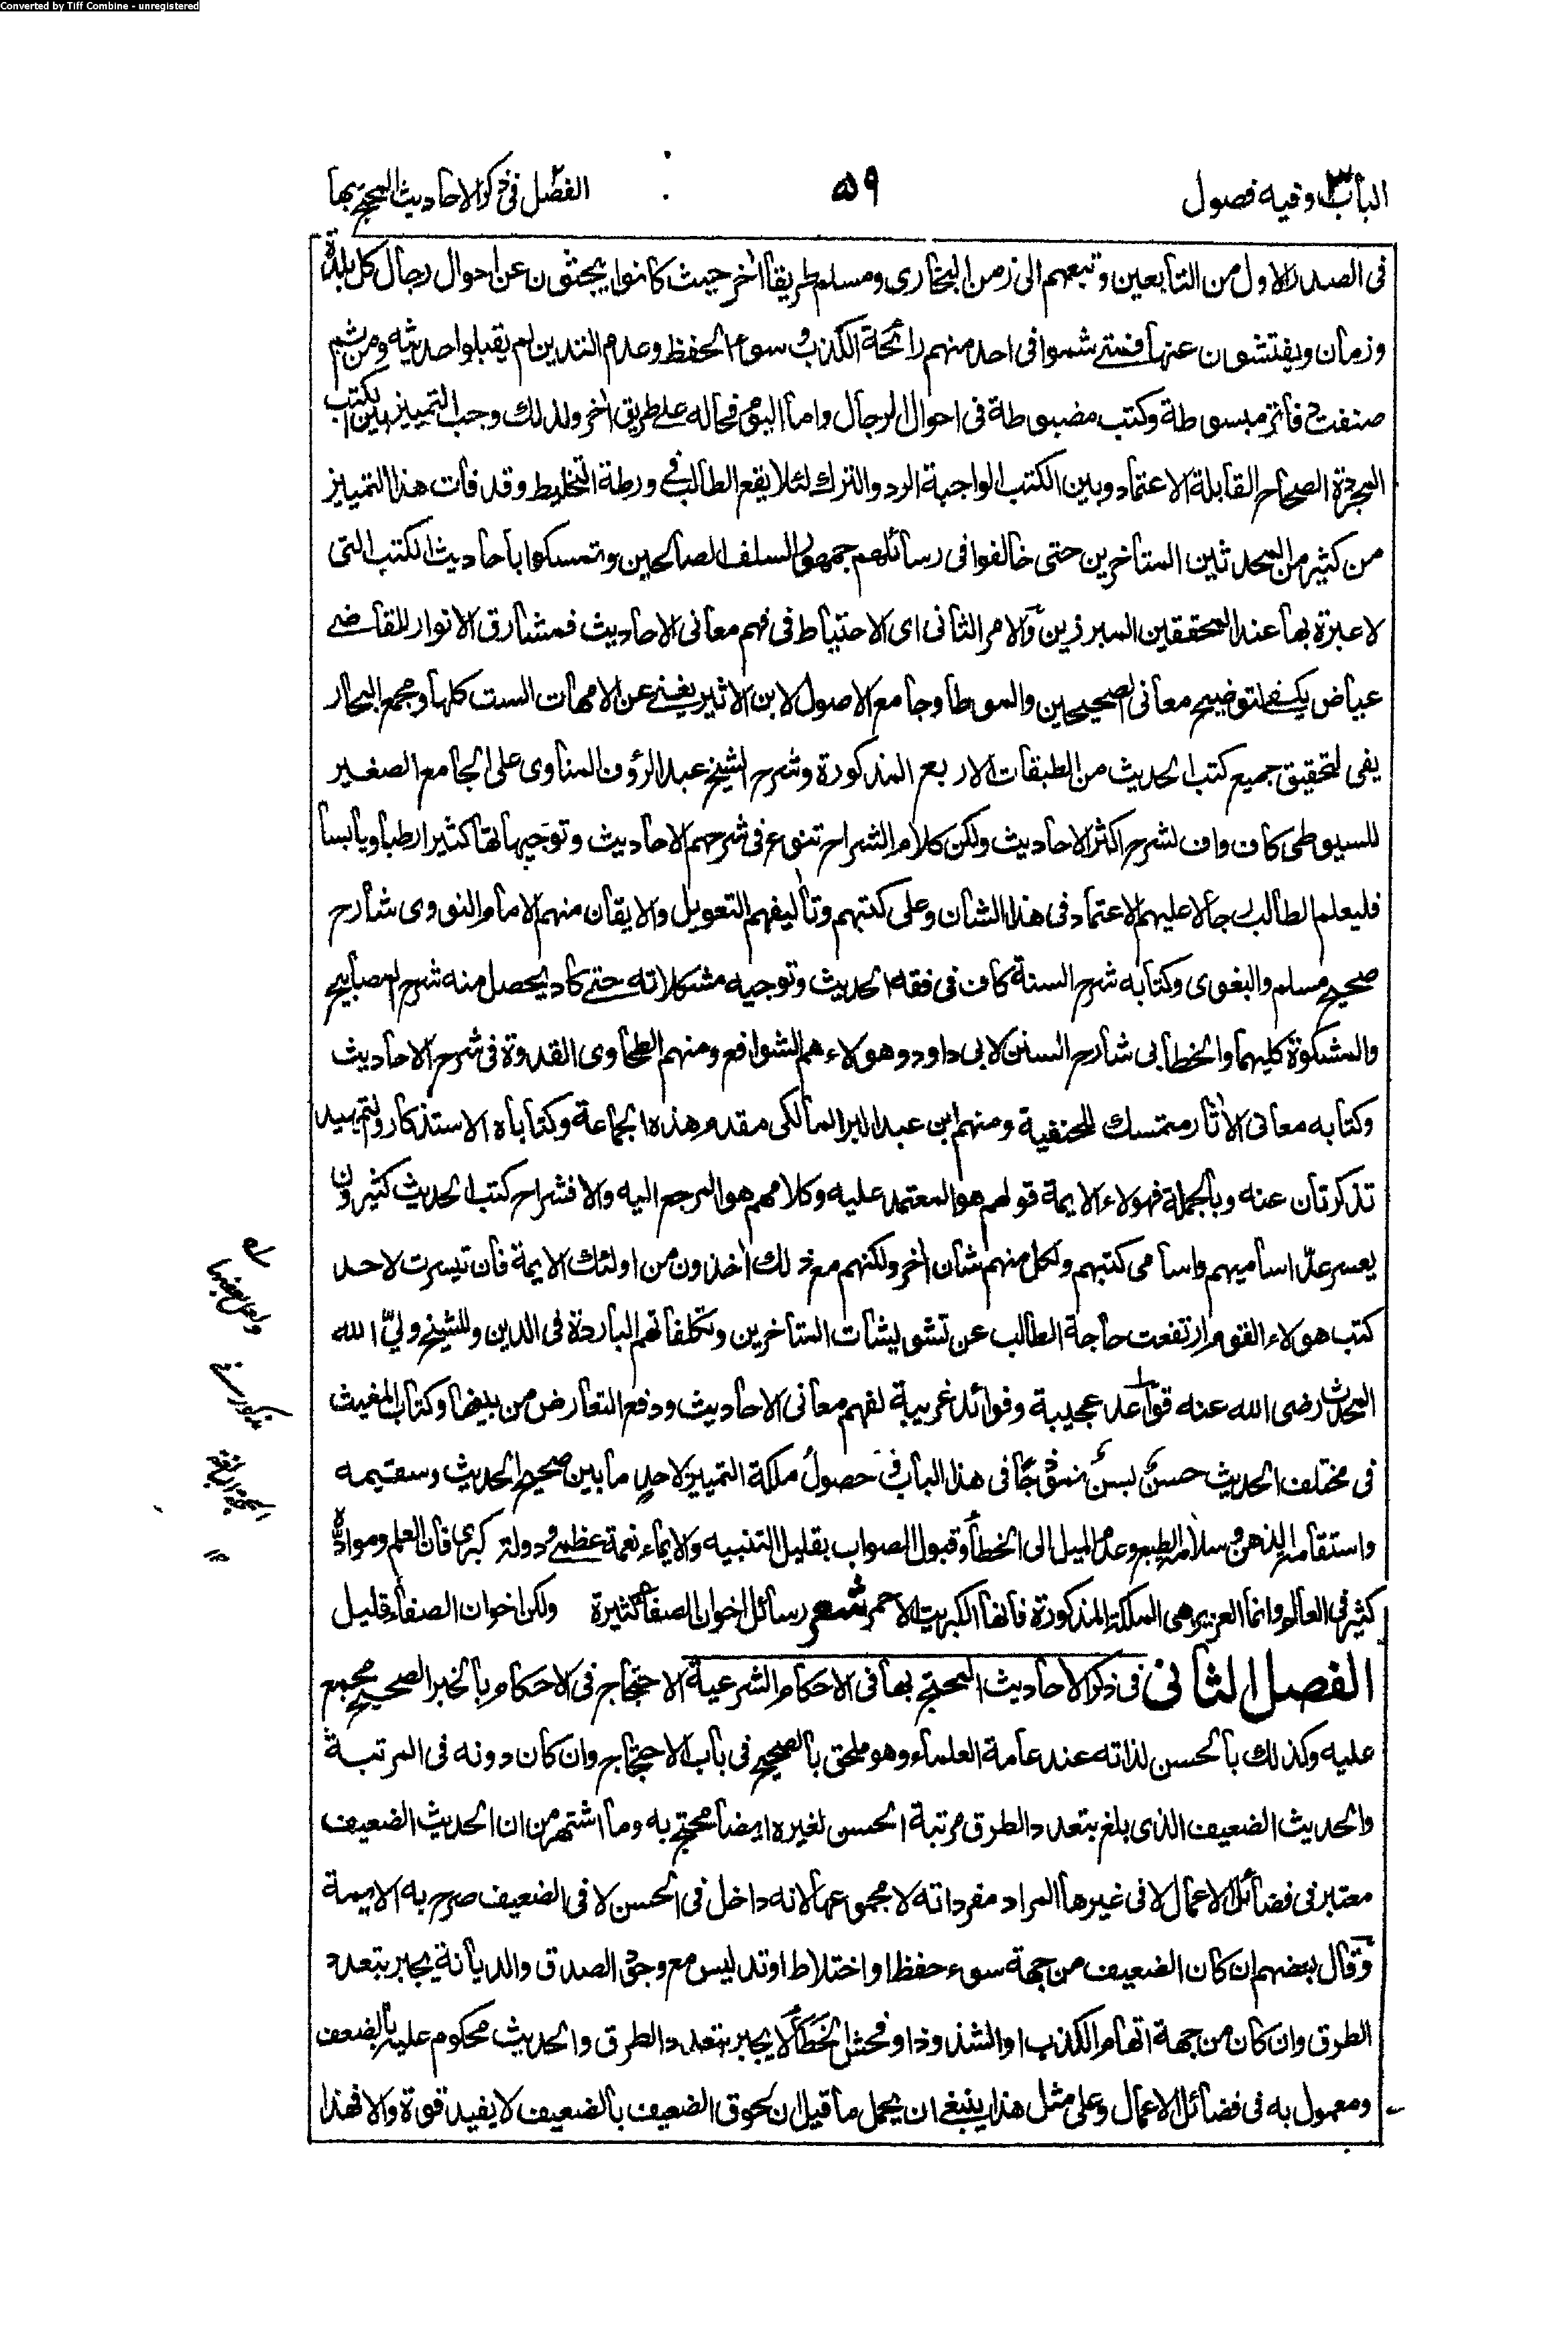 Converted by Tiff Combine - unregistered
الباب ٣ وفيه فصول
٥٩
الفصل ٢ فى ذكر الاحاديث المحتج بها
فى الصدر الاول من التابعين وتبعهم الى زمن البخارى ومسلم طريقا اخر حيث كانوا يبحثون عن احوال رجال كل بلدة
وزمان ويفتشون عنها فمتى شموا فى احد منهم رائحة الكذب وسوء الحفظ وعدم التدين لم يقبلوا حديثه ومن ثم
صنفت دفاتر مبسوطة وكتب مضبوطة فى احوال الرجال واما اليوم فحاله على طريق اخر ولذلك وجب التمييز بين الكتب
المجردة الصحاح القابلة الاعتماد وبين الكتب الواجبة الرد والترك لئلا يقع الطالب فى ورطة التخليط وقد فات هذا التمييز
من كثير من المحدثين المتاخرين حتى خالفوا فى رسائلهم جمهور السلف الصالحين وتمسكوا باحاديث الكتب التى
لا عبرة بها عند المحققين المبرزين والامر الثانى اى الاحتياط فى فهم معانى الاحاديث فمشارق الانوار للقاضى
عياض يكفى لتوضيح معانى الصحيحين والموطا وجامع الاصول لابن الاثير يغنى عن الامهات الست كلها ومجمع البحار
يفى لتحقيق جميع كتب الحديث من الطبقات الاربع المذكورة وشرح الشيخ عبد الرؤف المناوى على الجامع الصغير
للسيوطى كاف واف لشرح اكثر الاحاديث ولكن كلام الشراح تنوع فى شرحهم الاحاديث وتوجيهاتها كثيرا رطبا ويابسا
فليعلم الطالب رجالا عليهم الاعتماد فى هذا الشان وعلى كتبهم وتاليفهم التعويل والايقان منهم الامام النووى شارح
صحيح مسلم والبغوى وكتابه شرح السنة كاف فى فقه الحديث وتوجيه مشكلاته حتى كاد يحصل منه شرح المصابيح
والمشكوة كليهما والخطابى شارح السنن لابى داود وهولاء هم الشوافع ومنهم الطحاوى القدوة فى شرح الاحاديث
وكتابه معانى الاثار متمسك للحنفية ومنهم ابن عبد البر المالكى مقدم هذه الجماعة وكتاباه الاستذكار والتمهيد
تذكرتان عنه وبالجملة فهولاء الايمة قولهم هو المعتمد عليه وكلامهم هو المرجع اليه والا فشراح كتب الحديث كثيرون
يعسر عدّ اساميهم واسامى كتبهم ولكل منهم شان اخر ولكنهم مع ذلك اخذون من اولئك الايمة فان تيسرت لاحد
كتب هولاء القوم ارتفعت حاجة الطالب عن تشويشات المتاخرين وتكلفاتهم الباردة فى الدين وللشيخ ولىّ الله
المحدث رضى الله عنه قواعد عجيبة وفوائد غريبة لفهم معانى الاحاديث ودفع التعارض من بينها وكتاب المغيث
فى مختلف الحديث حسنٌ بسنٌ جدا فى هذا الباب حصول ملكة التمييز لاحدٍ ما بين صحيح الحديث وسقيمه
واستقامة الذهن وسلامة الطبع وعدم الميل الى الخطأ وقبول الصواب بقليل التنبيه والايماء نعمة عظمى ودولة كبرى فان العلم وموادّه
كثير فى العالم وانما العزيز هى الملكة المذكورة فانها الكبريت الاحمر شعر رسائل اخوان الصفا كثيرة ولكن اخوان الصفاء قليل
الفصل الثانى فى ذكر الاحاديث المحتج بها فى الاحكام الشرعية الاحتجاج فى الاحكام بالخبر الصحيح مجمع
عليه وكذلك بالحسن لذاته عند عامة العلماء وهو ملحق بالصحيح فى باب الاحتجاج وان كان دونه فى المرتبة
والحديث الضعيف الذى بلغ بتعدد الطرق مرتبة الحسن لغيره ايضا محتج به وما اشتهر من ان الحديث الضعيف
معتبر فى فضائل الاعمال لا فى غيرها المراد مفرداته لا مجموعها لانه داخل فى الحسن لا فى الضعيف صرح به الايمة
وقال بعضهم ان كان الضعيف من جهة سوء حفظ او اختلاط او تدليس مع وجود الصدق والديانة يجبر بتعدد
الطرق وان كان من جهة اتهام الكذب او الشذوذ او فحش الخطأ لا يجبر بتعدد الطرق والحديث محكوم عليه بالضعف
ومعمول به فى فضائل الاعمال وعلى مثل هذا ينبغى ان يحمل ما قيل ان لحوق الضعيف بالضعيف لا يفيد قوة والا فهذا